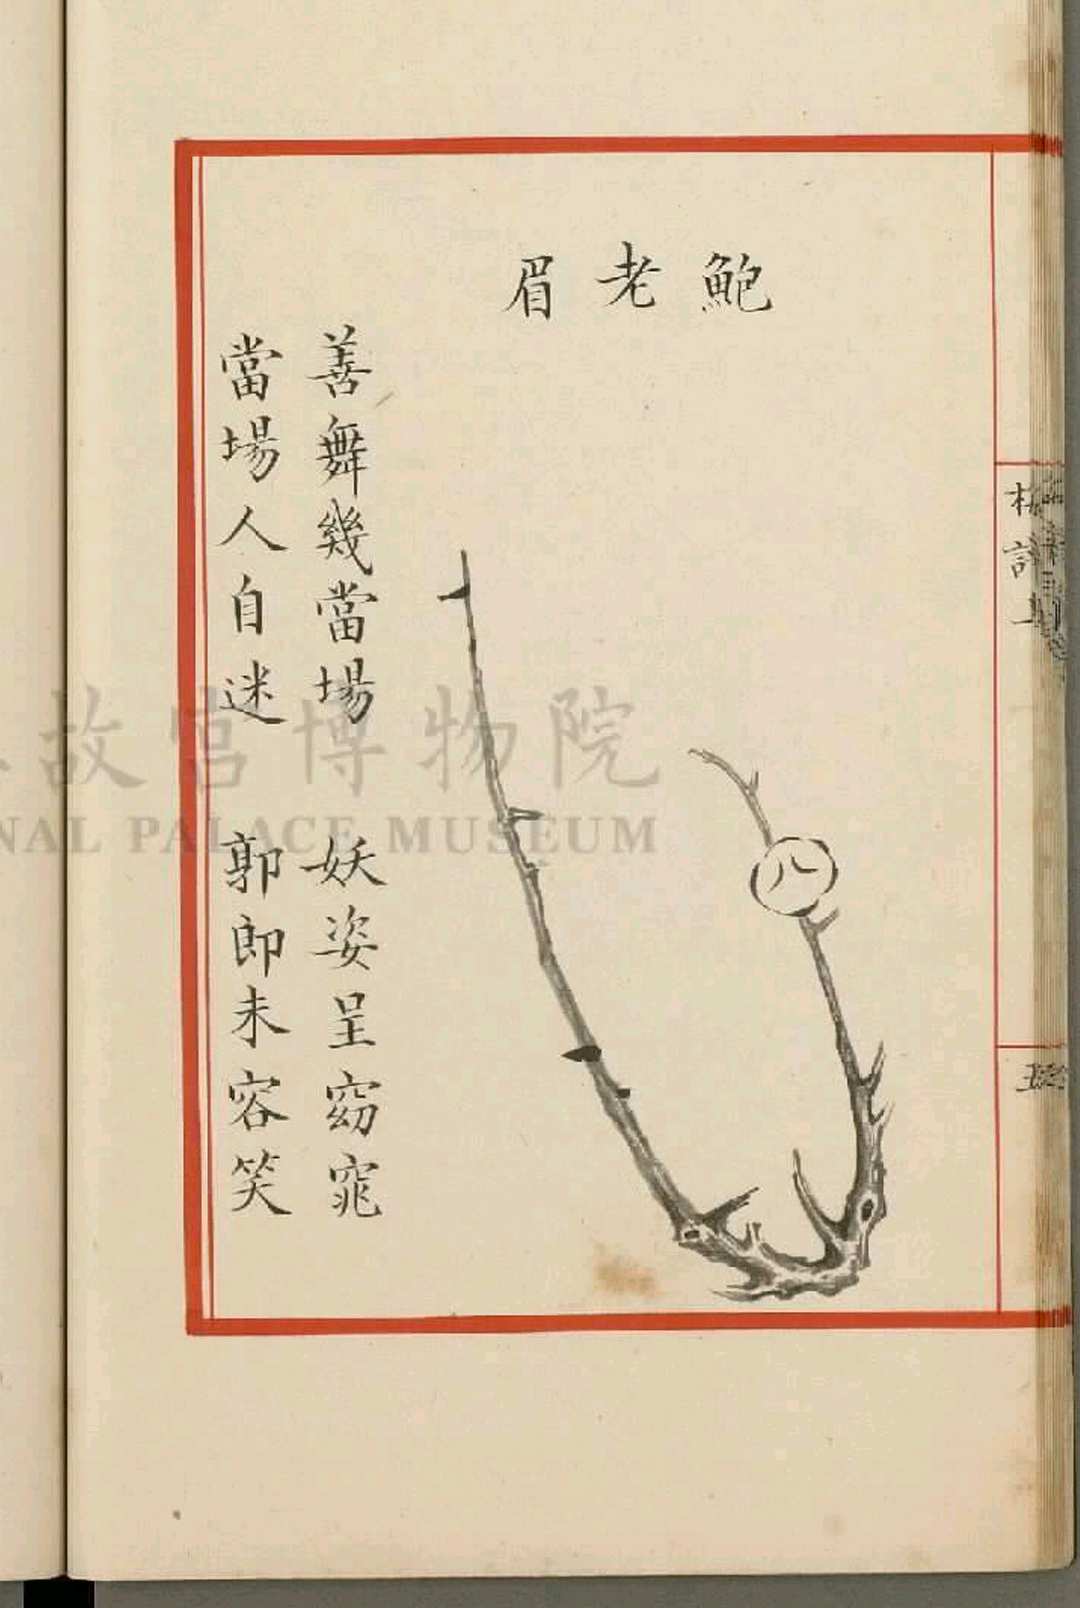 鮑老眉
善舞幾當場 妖姿呈窈窕
當場人自迷 郭郎未容笑
故宮博物院
NAL PALACE MUSEUM